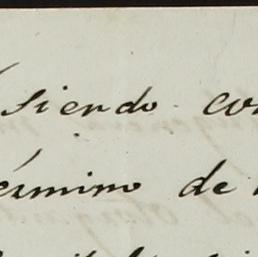 siendo co
érmino de